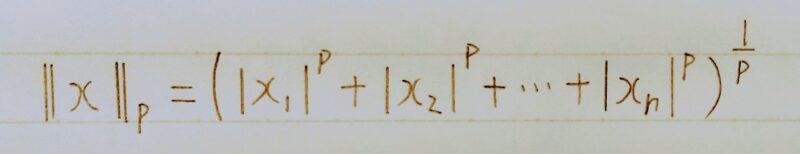 ‖x‖ₚ = (|x₁|ᵖ + |x₂|ᵖ + ⋯ + |xₙ|ᵖ)^(1/p)